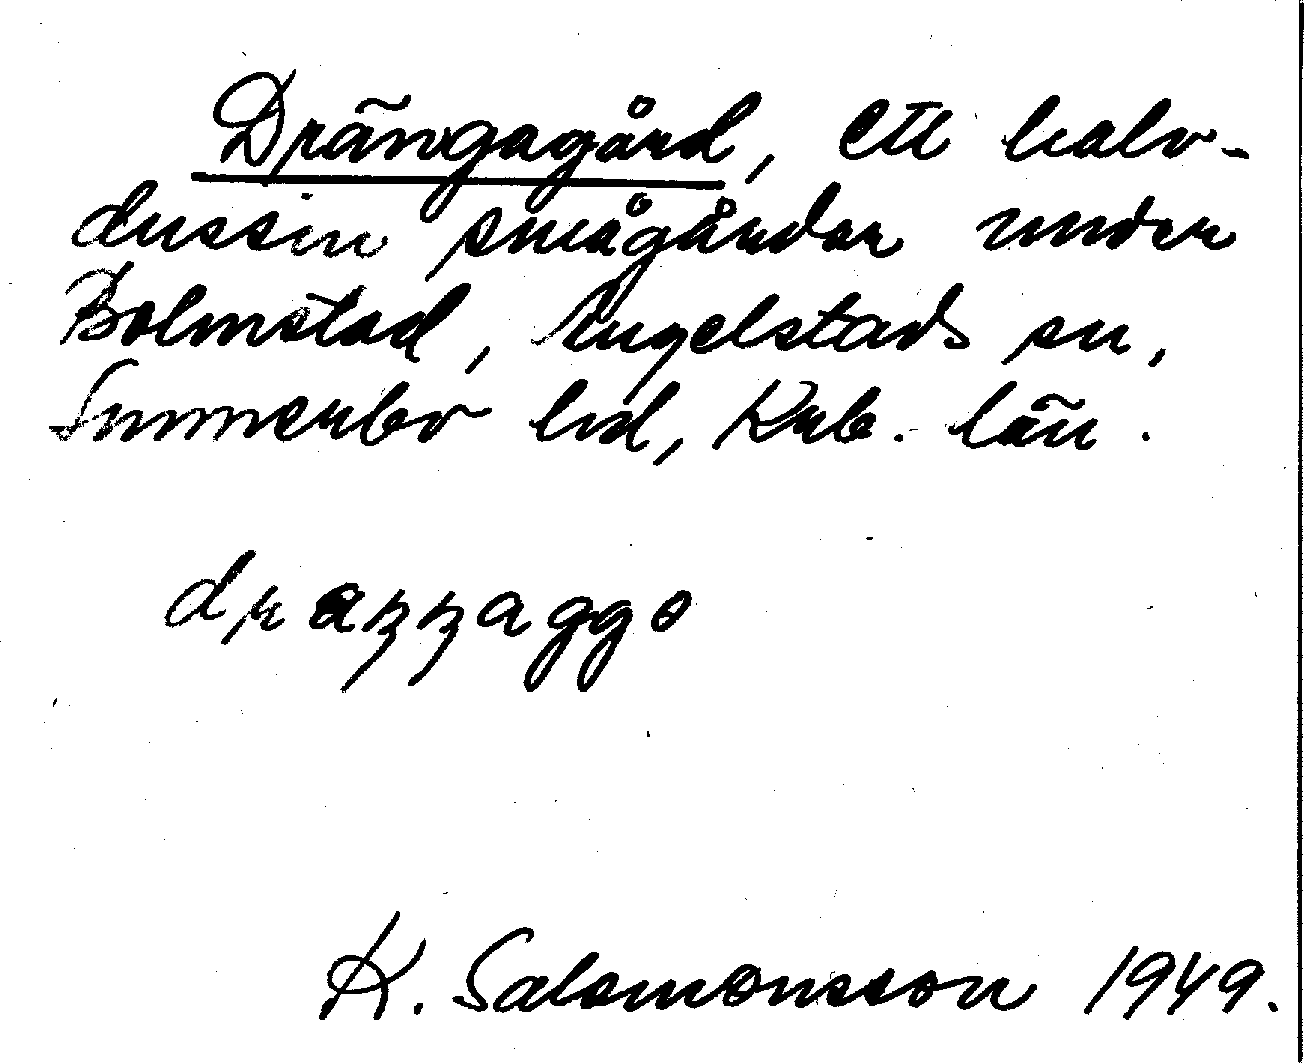 Drängagård, ett halv-
dussin smågårdar under
Bolmstad, Angelstads sn,
Sunnerbo hd, Krb. län.
draʒʒaggo
K. Salomonsson 1949.